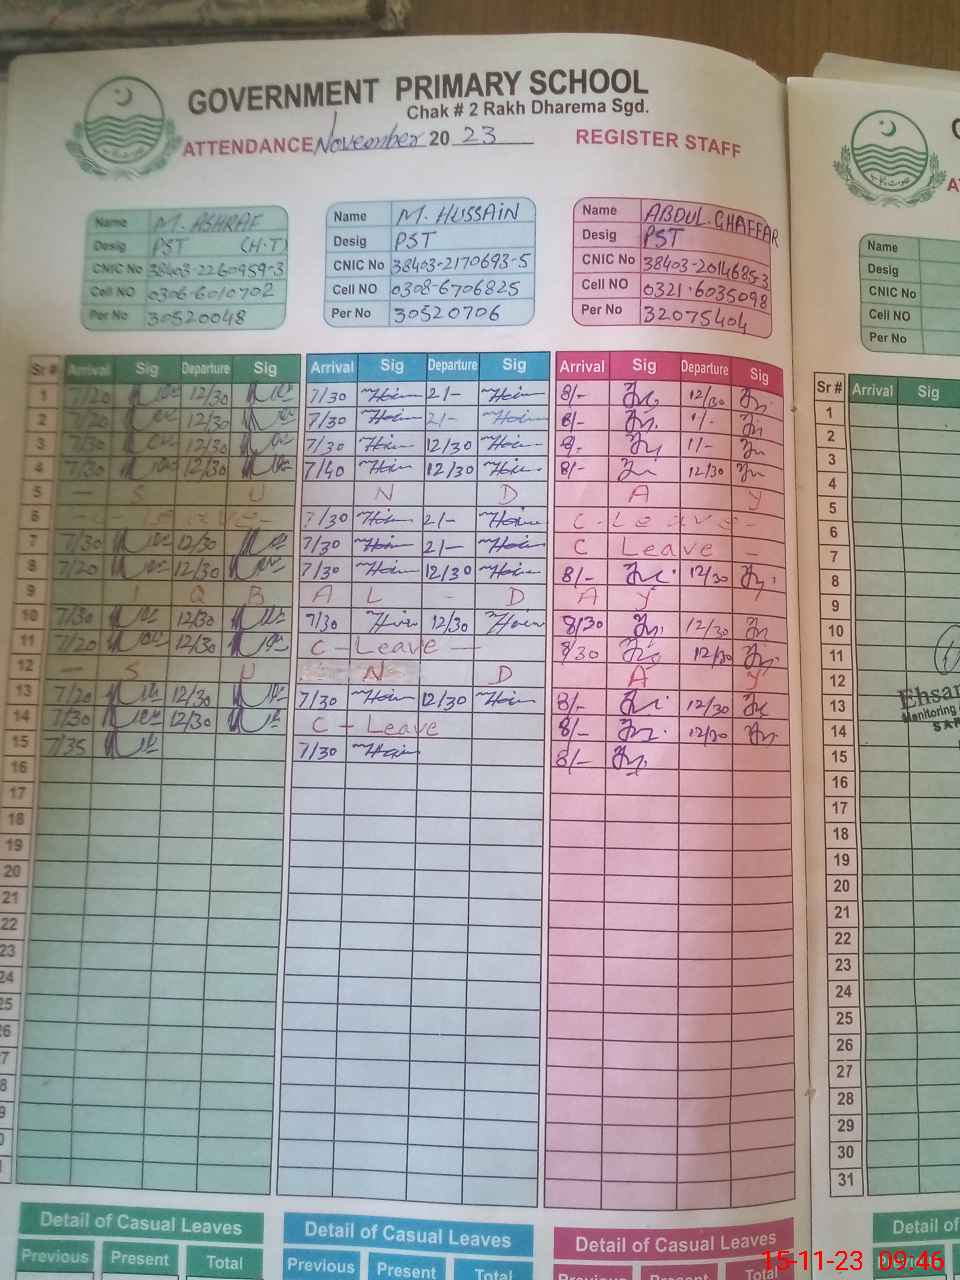 GOVERNMENT PRIMARY SCHOOL
Chak # 2 Rakh Dharema Sgd.
ATTENDANCE November 20 23 REGISTER STAFF
Name M. ASHRAF
Desig PST (H.T)
CNIC No 38403-2260959-3
Cell NO 0306-6010702
Per No 30520048
Name M. HUSSAIN
Desig PST
CNIC No 38403-2170693-5
Cell NO 0308-6706825
Per No 30520706
Name ABDUL GHAFFAR
Desig PST
CNIC No 38403-2014685-3
Cell NO 0321-6035098
Per No 32075404
Name
Desig
CNIC No
Cell NO
Per No
Sr # Arrival Sig Departure Sig Arrival Sig Departure Sig Arrival Sig Departure Sig Sr # Arrival Sig
1 7/20 12/30 7/30 2/- 8/- 12/30 1
2 7/20 12/30 7/30 2/- 8/- 1/- 2
3 7/30 12/30 7/30 12/30 8/- 1/- 3
4 7/30 12/30 7/40 12/30 8/- 12/30 4
5 — S U N D A Y 5
6 Leave - 7/30 2/- C - Leave - 6
7 7/30 12/30 7/30 2/- C Leave - 7
8 7/20 12/30 7/30 12/30 8/- 12/30 8
9 I Q B A L - D A Y 9
10 7/30 12/30 7/30 12/30 8/30 12/30 10
11 7/20 12/30 C - Leave — 8/30 12/30 11
12 — S U N D A Y 12
13 7/20 12/30 7/30 12/30 8/- 12/30 13
14 7/30 12/30 C - Leave 8/- 12/30 14
15 7/35 7/30 8/- 15
16 16
17 17
18 18
19 19
20 20
21 21
22 22
23 23
24 24
25 25
26 26
27 27
28
29
30
31
Ehsan
Monitoring
Detail of Casual Leaves
Previous Present Total
Detail of Casual Leaves
Previous Present Total
Detail of Casual Leaves
Previous Present Total
Detail of
15-11-23 09:46